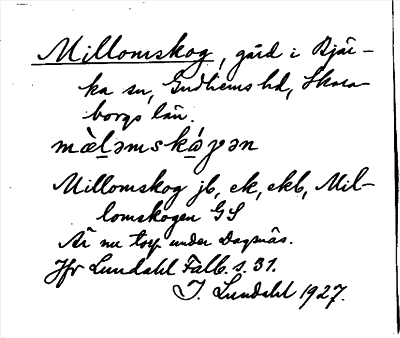 Millomskog, gård i Bjär-
ka sn, Gudhems hd, Skara-
borgs län.
mæ̀ləmskóɡən
Millomskog jb, ek, ekb, Mil-
lomskogen GS
Är nu torp under Dagsnäs.
Jfr Lundahl Falb. s. 31.
I. Lundahl 1927.